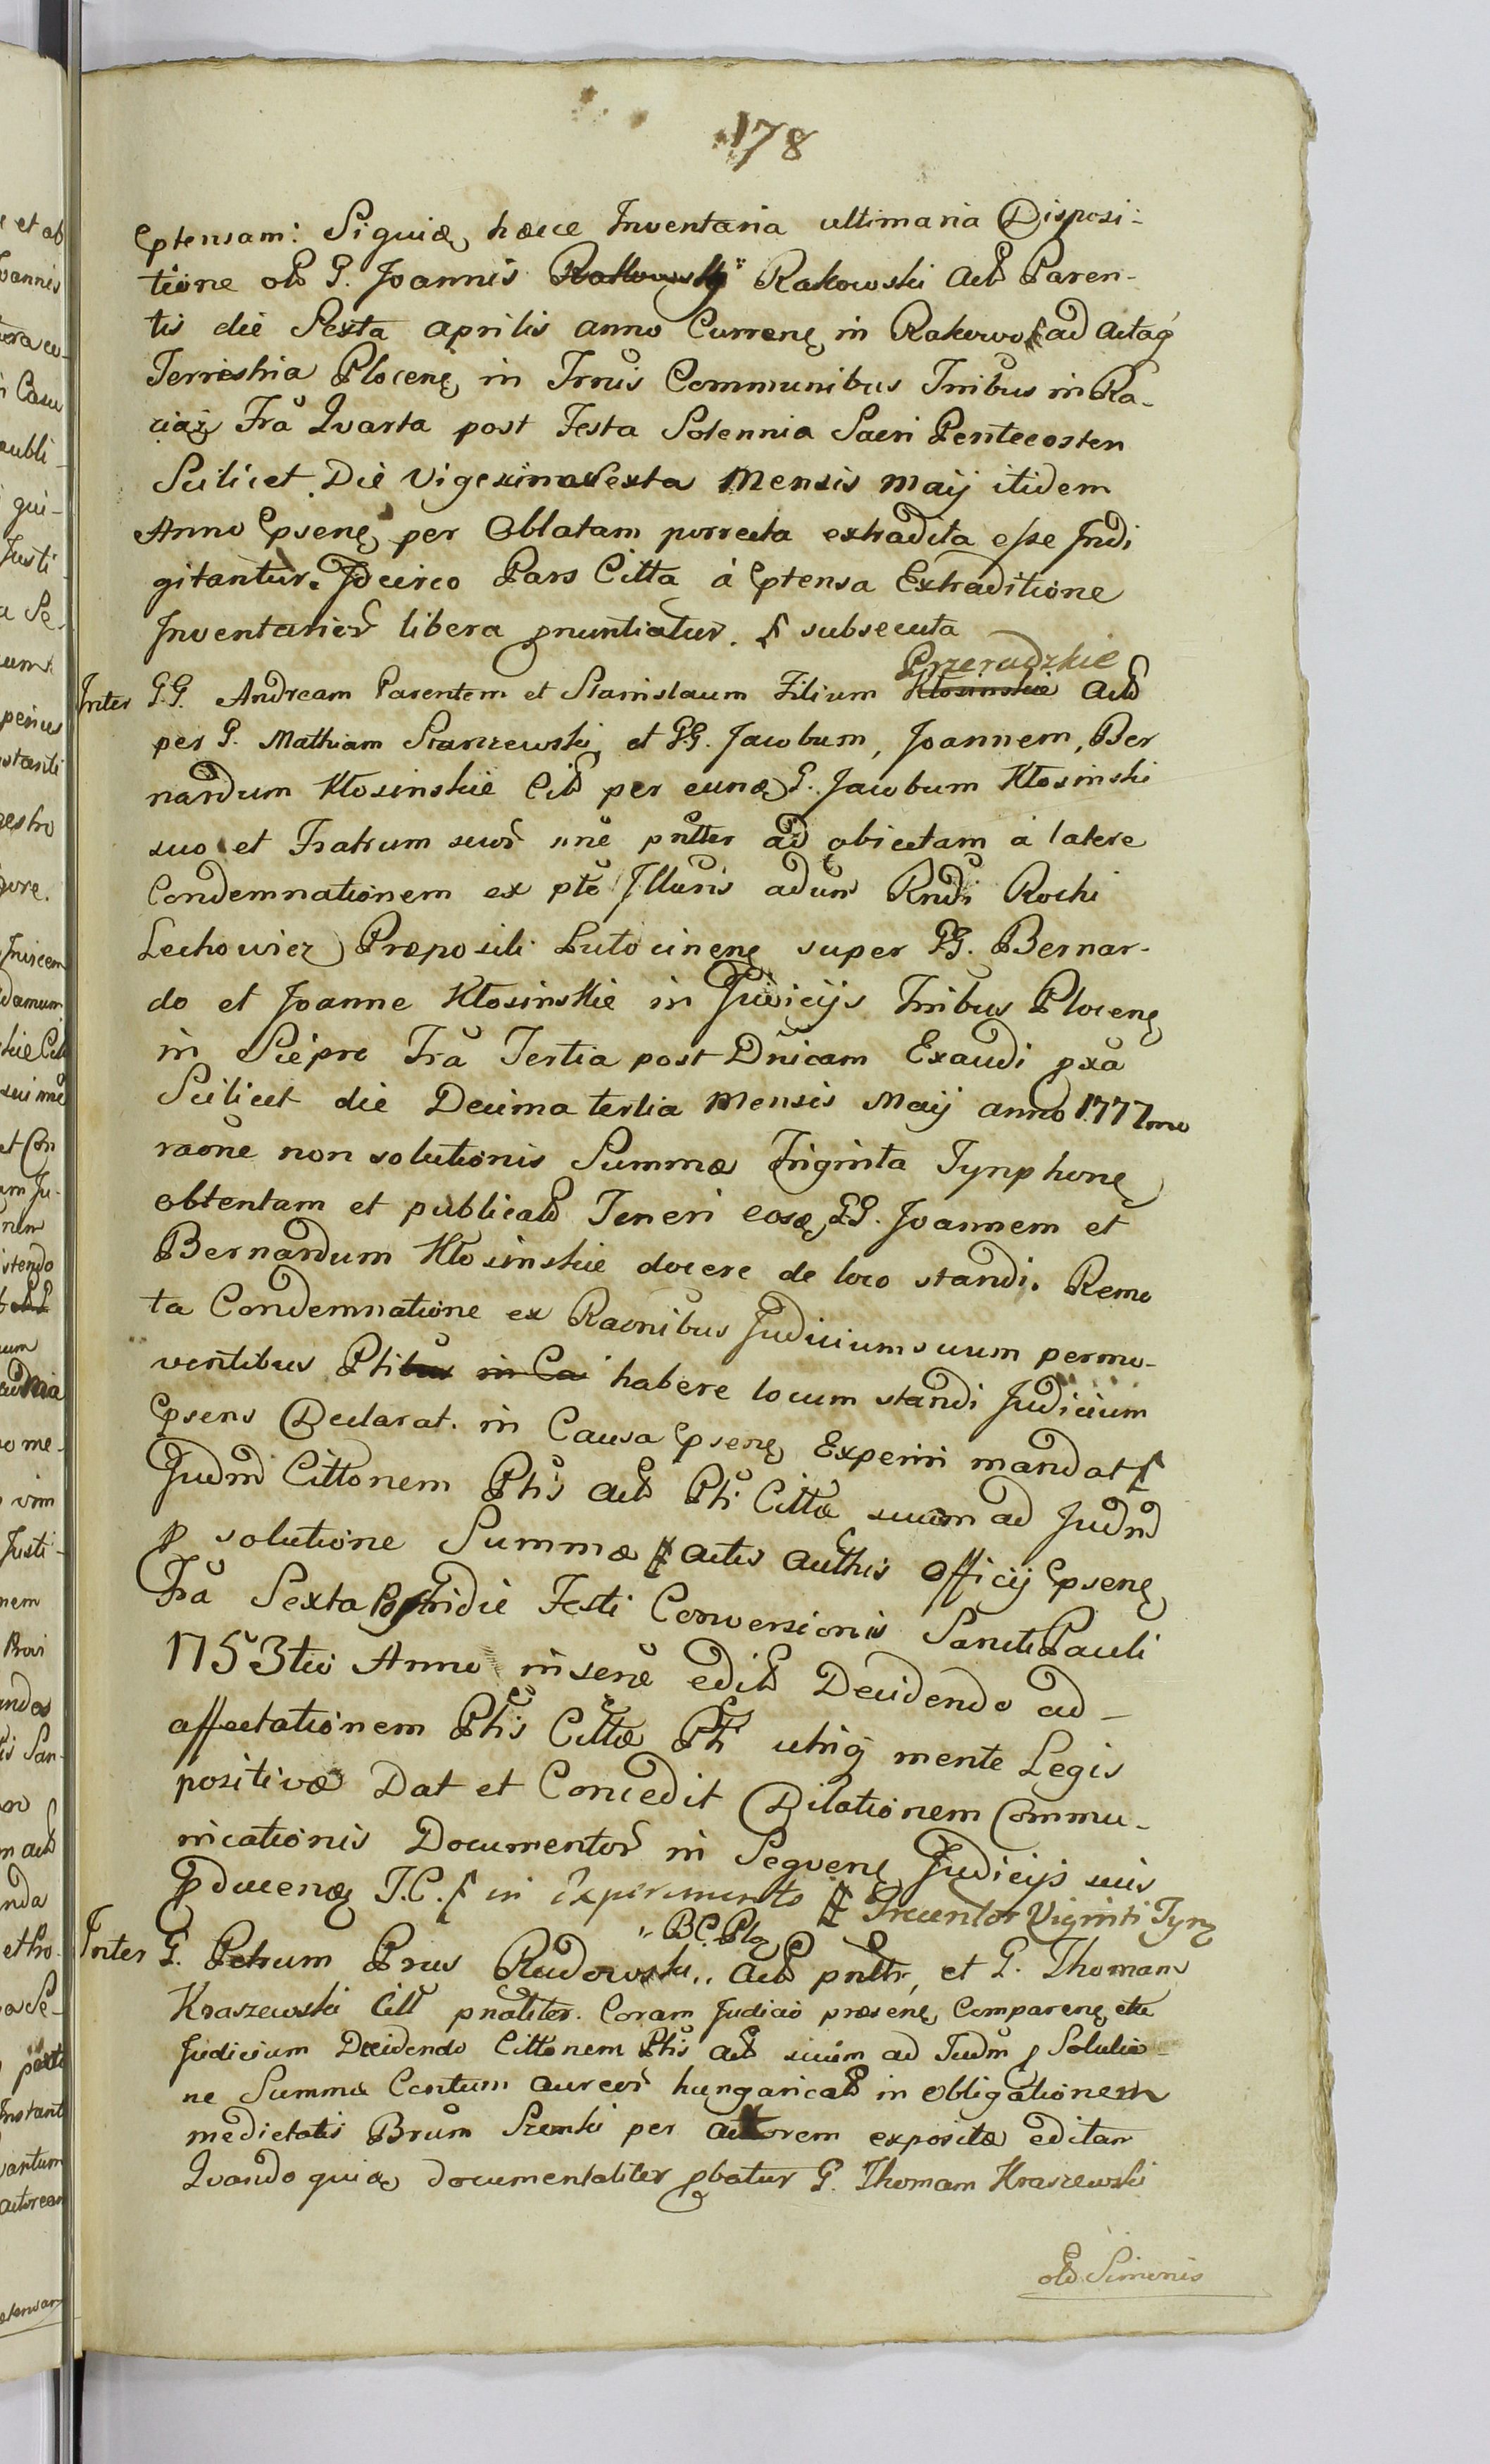 178
ptensam: Siquidẽ hæcce Inventaria ultimaria Disposi-
tione olƀ G. Joannis Rakowski Rakowski Actƀ Paren-
tis die Sexta aprilis anno Currenę in Rakowo ad actaq
Terrestria Plocenę in Trnis Communibus Trribus in Ra-
ciąż Fra Qvarta post Festa Solennia Sacri Pentecosten
Scilicet Die Vigesima Sexta Mensis Maij itidem
Anno psenę per Oblatam porrecta extradita esse Indi
gitantur. Idcirco Pars Citta á ptensa Extraditione
Inventarior libera pnuntiatur. subsecuta
Przeradzkie
Inter GG. Andream Parentem et Stanislaum Filium Kłosinskie Actƀ
per G. Mathiam Starzewski, et GG. Jacobum, Joannem, Ber
nardum Kłosinskie Citƀ per eunđ G. Jacobum Kłosinski
suo et Fratrum suor nne pntter ad obiectam á latere
Condemnationem ex pte Illuris adum Rndi Rochi
Lechowicz Præpositi Lutocinenę super GG. Bernar-
do et Joanne Kłosinskie in Judicijs Trribus Plocenę
in Sieprc Fra Tertia post Dnicam Exaudi pxa
Scilicet die Decima tertia Mensis Maij anno 1777mo
raone non solutionis Summæ Triginta Tynphonę
obtentam et publicatƀ Teneri eosđ GG. Joannem et
Bernardum Kłosinskie docere de loco standi. Remo
ta Condemnatione ex Raonibus Judicium suum permo-
ventibus Ptibus in Ca habere locum standi Judicium
psens Declarat. in Causa psenę Experiri mandat
Judm Cittonem Ptis Actƀ Pti Citta suum ad Judm
p solutione Summæ actis authis Officij psenę
Fra Sexta Postridie Festi Conversionis Sancti Pauli
1753tio Anno insene editƀ Decidendo ad-
affectationem Ptis Citta Pti utriq mente Legis
positivæ Dat et Concedit Dilationem Commu-
nicationis Documentor in Seqvenę Judicijs suis
pducenđ T.C. in Experimento Trecentor Viginti Tynę
" B.C. Plę
Inter G. Petrum Prus Rudowski " Actƀ pntter, et G. Thomam
Kraszewski Citƀ pnaliter. Coram Judicio præsenę Comparenę ette
Judicium Decidendo Cittonem Ptis Actƀ suum ad Judm p Solutio-
ne Summæ Centum aureor hungaricalƀ in Obligationem
medietatis Brum Szenki per actorem expositæ editam
Qvandoquidẽ documentaliter pbatur G. Thomam Kraszewski
olƀ Simonis